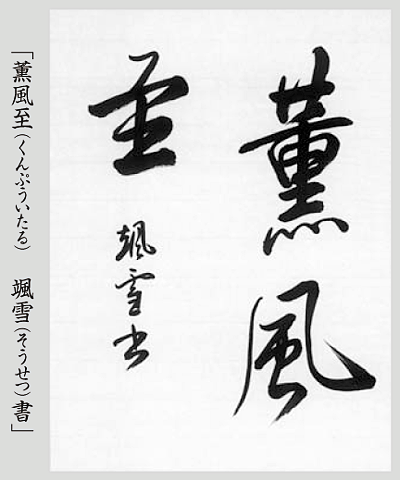 薫風
至
颯雪書
「薫風至（くんぷういたる）　颯雪（そうせつ）書」